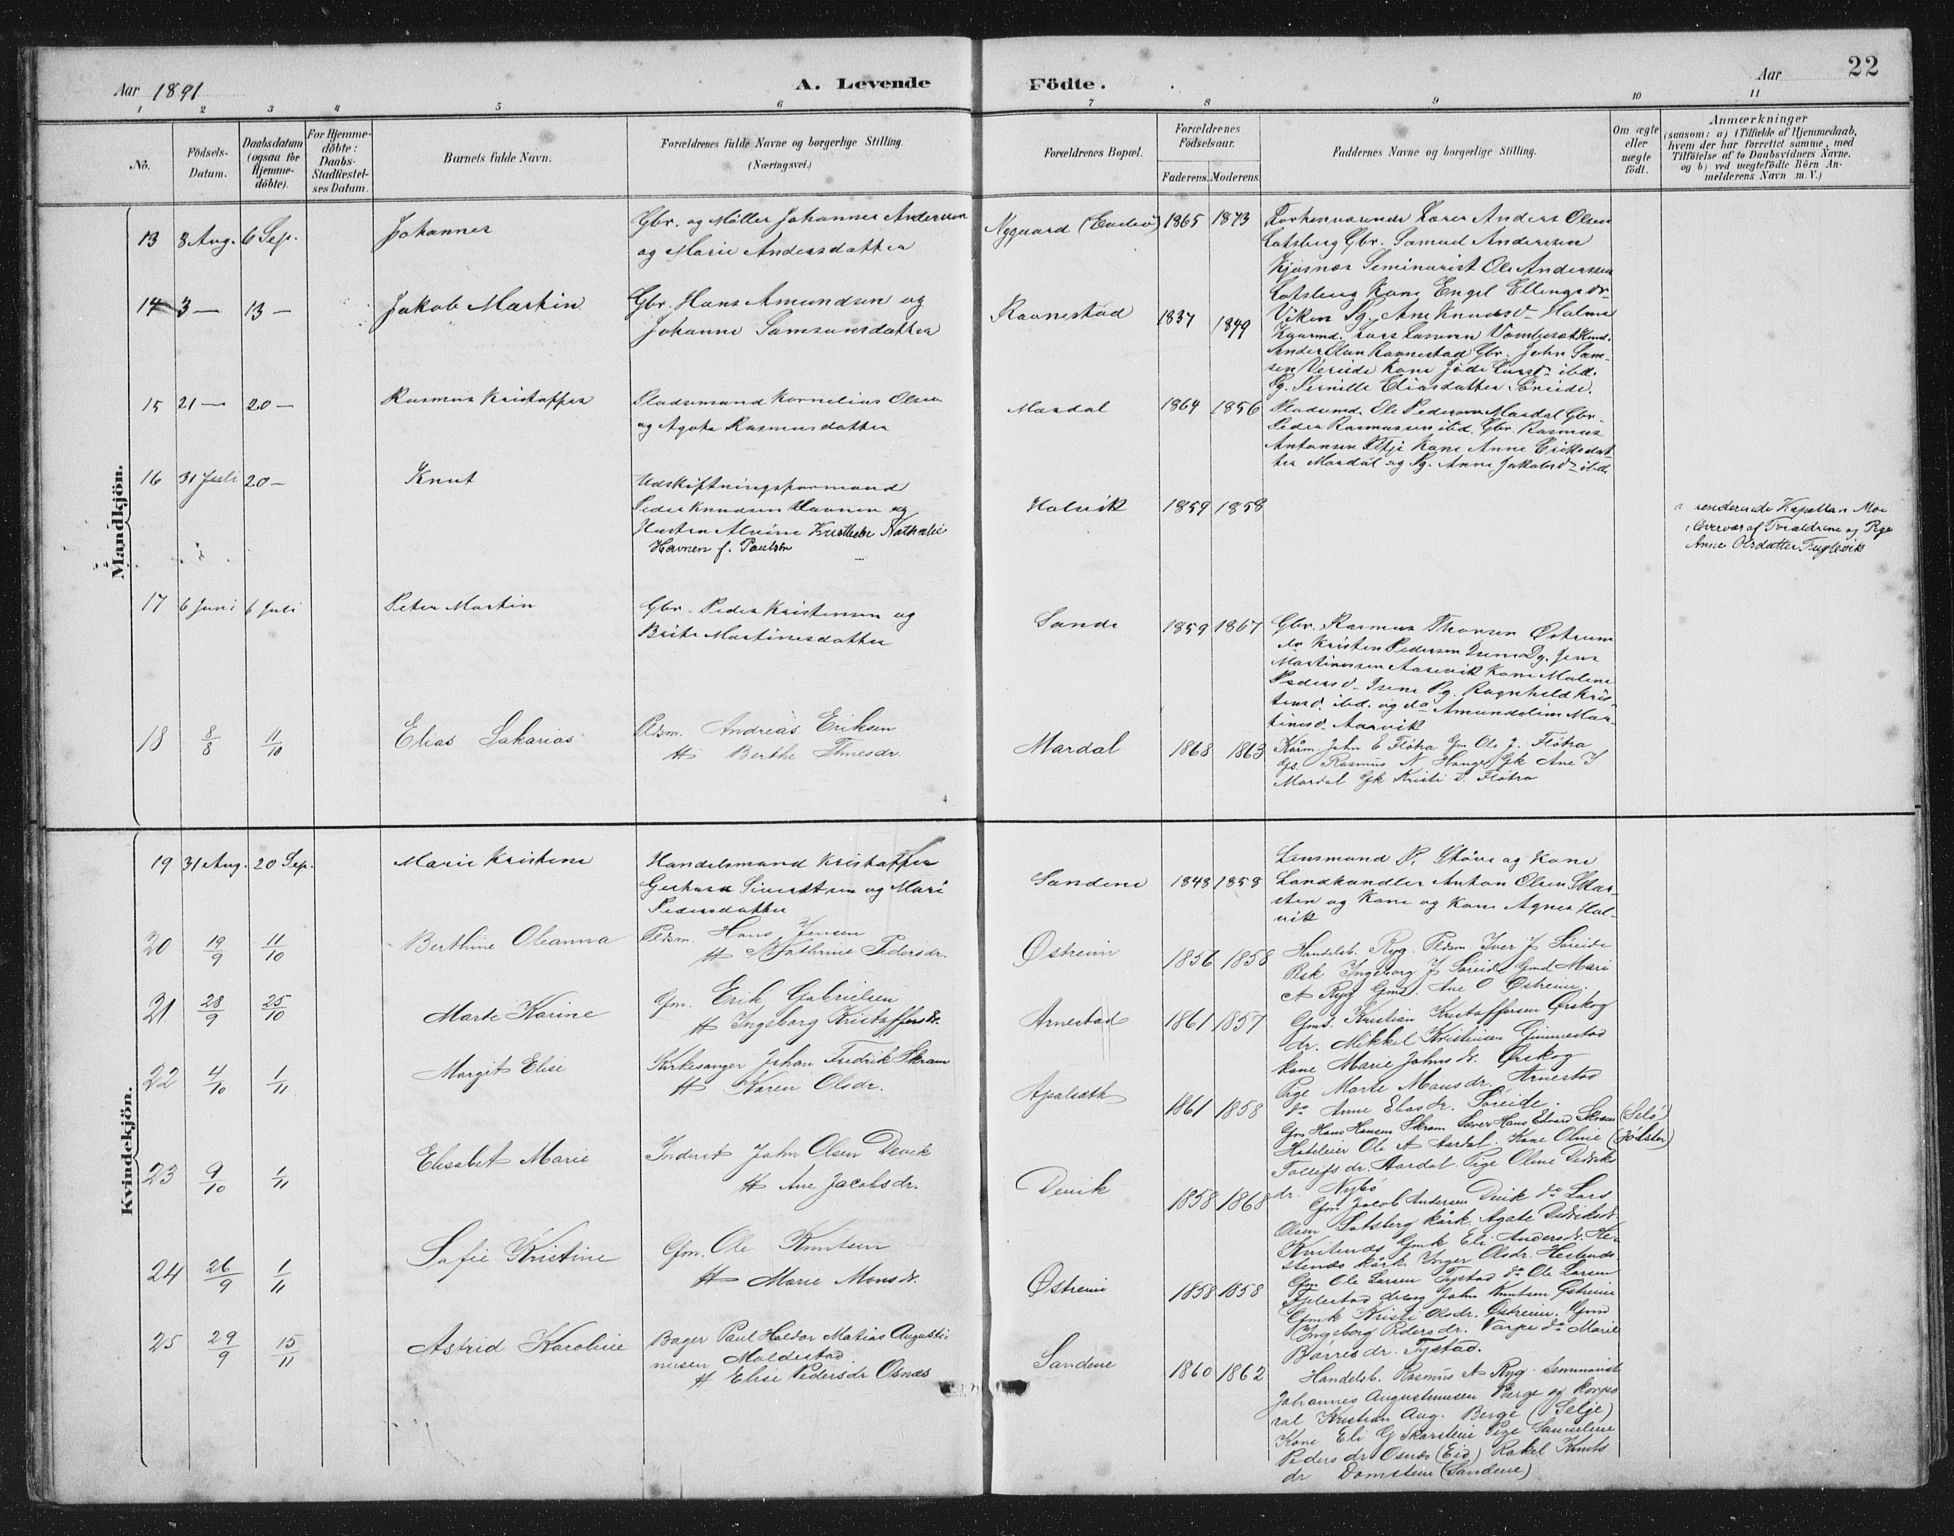 Aar 1891
A. Levende
Födte.
Aar
22
1 2 3 4 5 6 7 8 9 10 11
No.
Födsels-Datum.
Daabsdatum (ogsaa for Hjemme-döbte).
For Hjemme-döbte: Daabs-Stadfæstel-ses Datum.
Barnets fulde Navn.
Forældrenes fulde Navne og borgerlige Stilling. (Næringsvei.)
Forældrenes Bopæl.
Forældrenes Födselsaar.
Faderens. Moderens.
Faddernes Navne og borgerlige Stilling.
Om ægte eller uægte födt.
Anmærkninger
(saasom: a) i Tilfælde af Hjemmedaab, hvem der har forrettet samme, med Tilföielse af to Daabsvidners Navne, og b) ved uegtefödte Börn An-melderens Navn m. V.)
Mandkjön.
13 8 Aug. 6 Sep. Johannes
Gbr. og Møller Johannes Anderssen
og Marie Andersdatter
Nygaard 1865 1873
Lærer Anders Olsen
Lotsberg Gbr. Samuel Anderssen
Kjøsnæs Seminarist Ole Anderssen
Lotsberg Kone Engel Ellingsdr
Viken Pg. Ane Knudsd Holme
14 3 — 13 — Jakob Martin
Gbr. Hans Amundsen og
Johanne Samsonsdatter
Ravnestad 1837 1849
Ravnestad Gbr. John Sam-
sen
Pg. Pernille Eliasdatter Søreide.
15 21 — 20 — Rasmus Kristoffer
Pladsmand Kornelius Olsen
og Agota Rasmusdatter
Mardal 1864 1856
Pladsmd. Ole Pedersen Mardal Gbr.
Peder Rasmussen ibd. Gbr. Rasmus
Antonsen Kone Anne Eriksdat-
ter Mardal og Pg. Anne Jakobsd ibd
16 31 Juli 20 — Knut
Udskiftningsformand
Peder Knudsen Havnen og
Hustru Alvine Nathalie
Havnen f. Paulsen
Holvik 1859 1858
Kapellan Moe
Overvær af Forældrene og Pige
Anne Olsdatter Fuglevik
17 6 Juni 6 Juli Peter Martin
Gbr. Peder Kristensen og
Brite Martinesdatter
Sande 1859 1867
Gbr. Rasmus Thonsen Østreim
do Kristen Pedersen Isene Pg. Jens
Martinussen Aarevik Kone Malene
Pedersd. Isene Pg. Ragnhild Kris-
tensd. ibd. og do Amundeline Mar-
tinsd. Aarvik
18 8/8 11/10 Elias Sakarias
Pldsm. Andreas Eriksen
H Berthe
Mardal 1868 1863
Kårm John E Flötra Gm Ole J. Flötra
Gs. Rasmus N Hauge Gk Ane I
Mardal Gk Kristi D. Flötra
Kvindekjön.
19 31 Aug. 20 Sep. Marie Kristine
Handelsmand Kristoffer
Gerhard Sivertsen og Mari
Pedersdatter
Sandene 1848 1858
Lensmand P. Støve og Kone
Landhandler Anton Olsen Skar-
sten og Kone og Kone Agnes Hol-
vik
20 19/9 11/10 Berthine Oleanna
Pldsm. Hans Jensen
H Mathrine Pedersdr.
Østreim 1856 1858
Handelsb. Ryg. Pldsm Iver J Søreide
Plsk Ingeborg J Søreide Gmd Mari
A Ryg Gmd. Ane O Östreim.
21 28/9 25/10 Marte Karine
Gm. Erik Gabrielsen
H Ingeborg Kristoffersdr.
Arnestad 1861 1857
Gmd. Kristian Kristoffersen Ørskog
dr. Mikkel Kristensen Gimmestad
Kone Marie Johnsdr. Ørskog
Pige Marte Mansdr. Arnestad
do Anne Eliasdr. Søreide.
22 4/10 1/11 Margit Elise
Kirkesanger Johan Fredrik Skram
H Karen Olsdr.
Apalsæth 1861 1858
Gm Hans Hansen Skram Lærer Hans Edvard Skram (Selö)
Hoteleier Ole A Aardal. Kone Oline (Jölster)
Tollefsdr. Aardal. Pige Oline Didriks
dr. Nybö
23 9/10 1/11 Elisabet Marie
Inderst John Olsen Devik
H Ane Jacobsdr.
Devik 1858 1868
Gm Jacob Andersen Devik do Lars
Olsen Lotsberg Kårk. Agate Didriksdr
Gmk Eli Andersdr. He-
stenæs Kårk Inger Olsdr. Hestenæs
24 26/9 1/11 Sofie Kristine
Gm. Ole Knutsen
H Marie Monsdr.
Østreim 1858 1858
Gm Ole Larsen Tystad do Ole Larsen
Fjelestad dreng John Knutsen Østreim
Gmk Kristi Olsdr. Østreim. Gmd
Ingeborg Pedersdr. Varpe do Marie
Børresdr. Tystad.
25 29/9 15/11 Astrid Karoline
Bager Paul Haldor Matias Augusti-
nusen Moldestad
H Elise Pedersdr Osnæs
Sandene 1860 1862
Handelsb. Rasmus A Ryg Seminarist
Johannes Augustinusen Berge og Korpo
ral Kristian Aug. Berge (Selje)
Kone Eli G Skarstein Pige Samueline
Pedersdr Osnæs (Eid) Rakel Knuts
dr Domstein (Sandene)